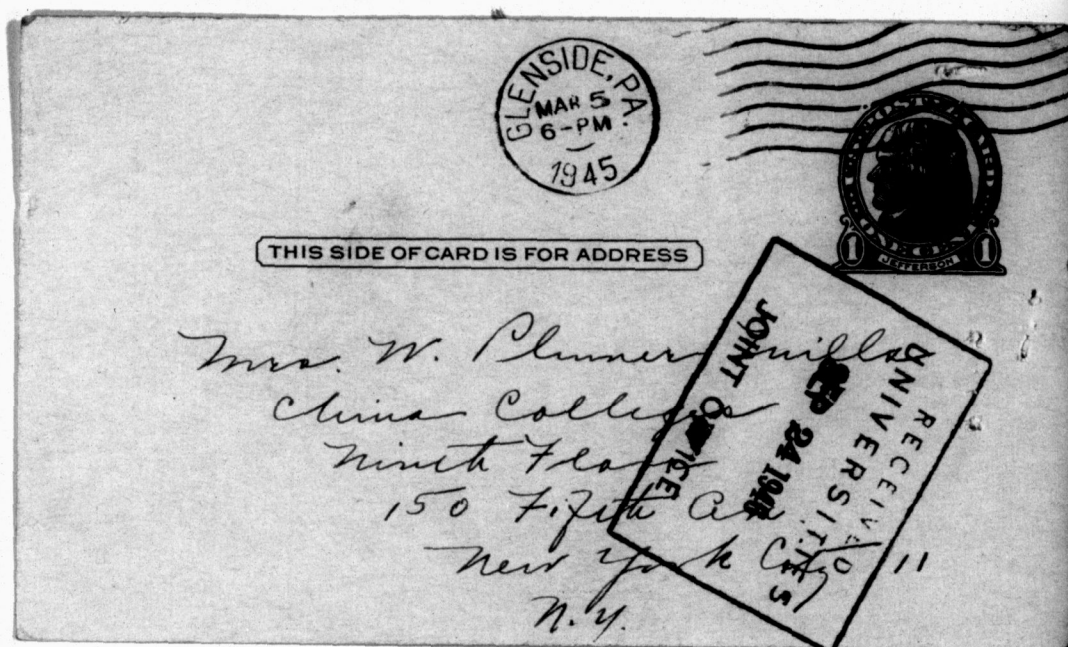 GLENSIDE, PA.
MAR 5
6-PM
1945
1 JEFFERSON 1
THIS SIDE OF CARD IS FOR ADDRESS
RECEIVED
UNIVERSITIES
SEP 24 1945
JOINT OFFICE
Mrs. W. Plumer
China Colleges
Ninth Floor
150 Fifth Ave
New York City 11
N.Y.